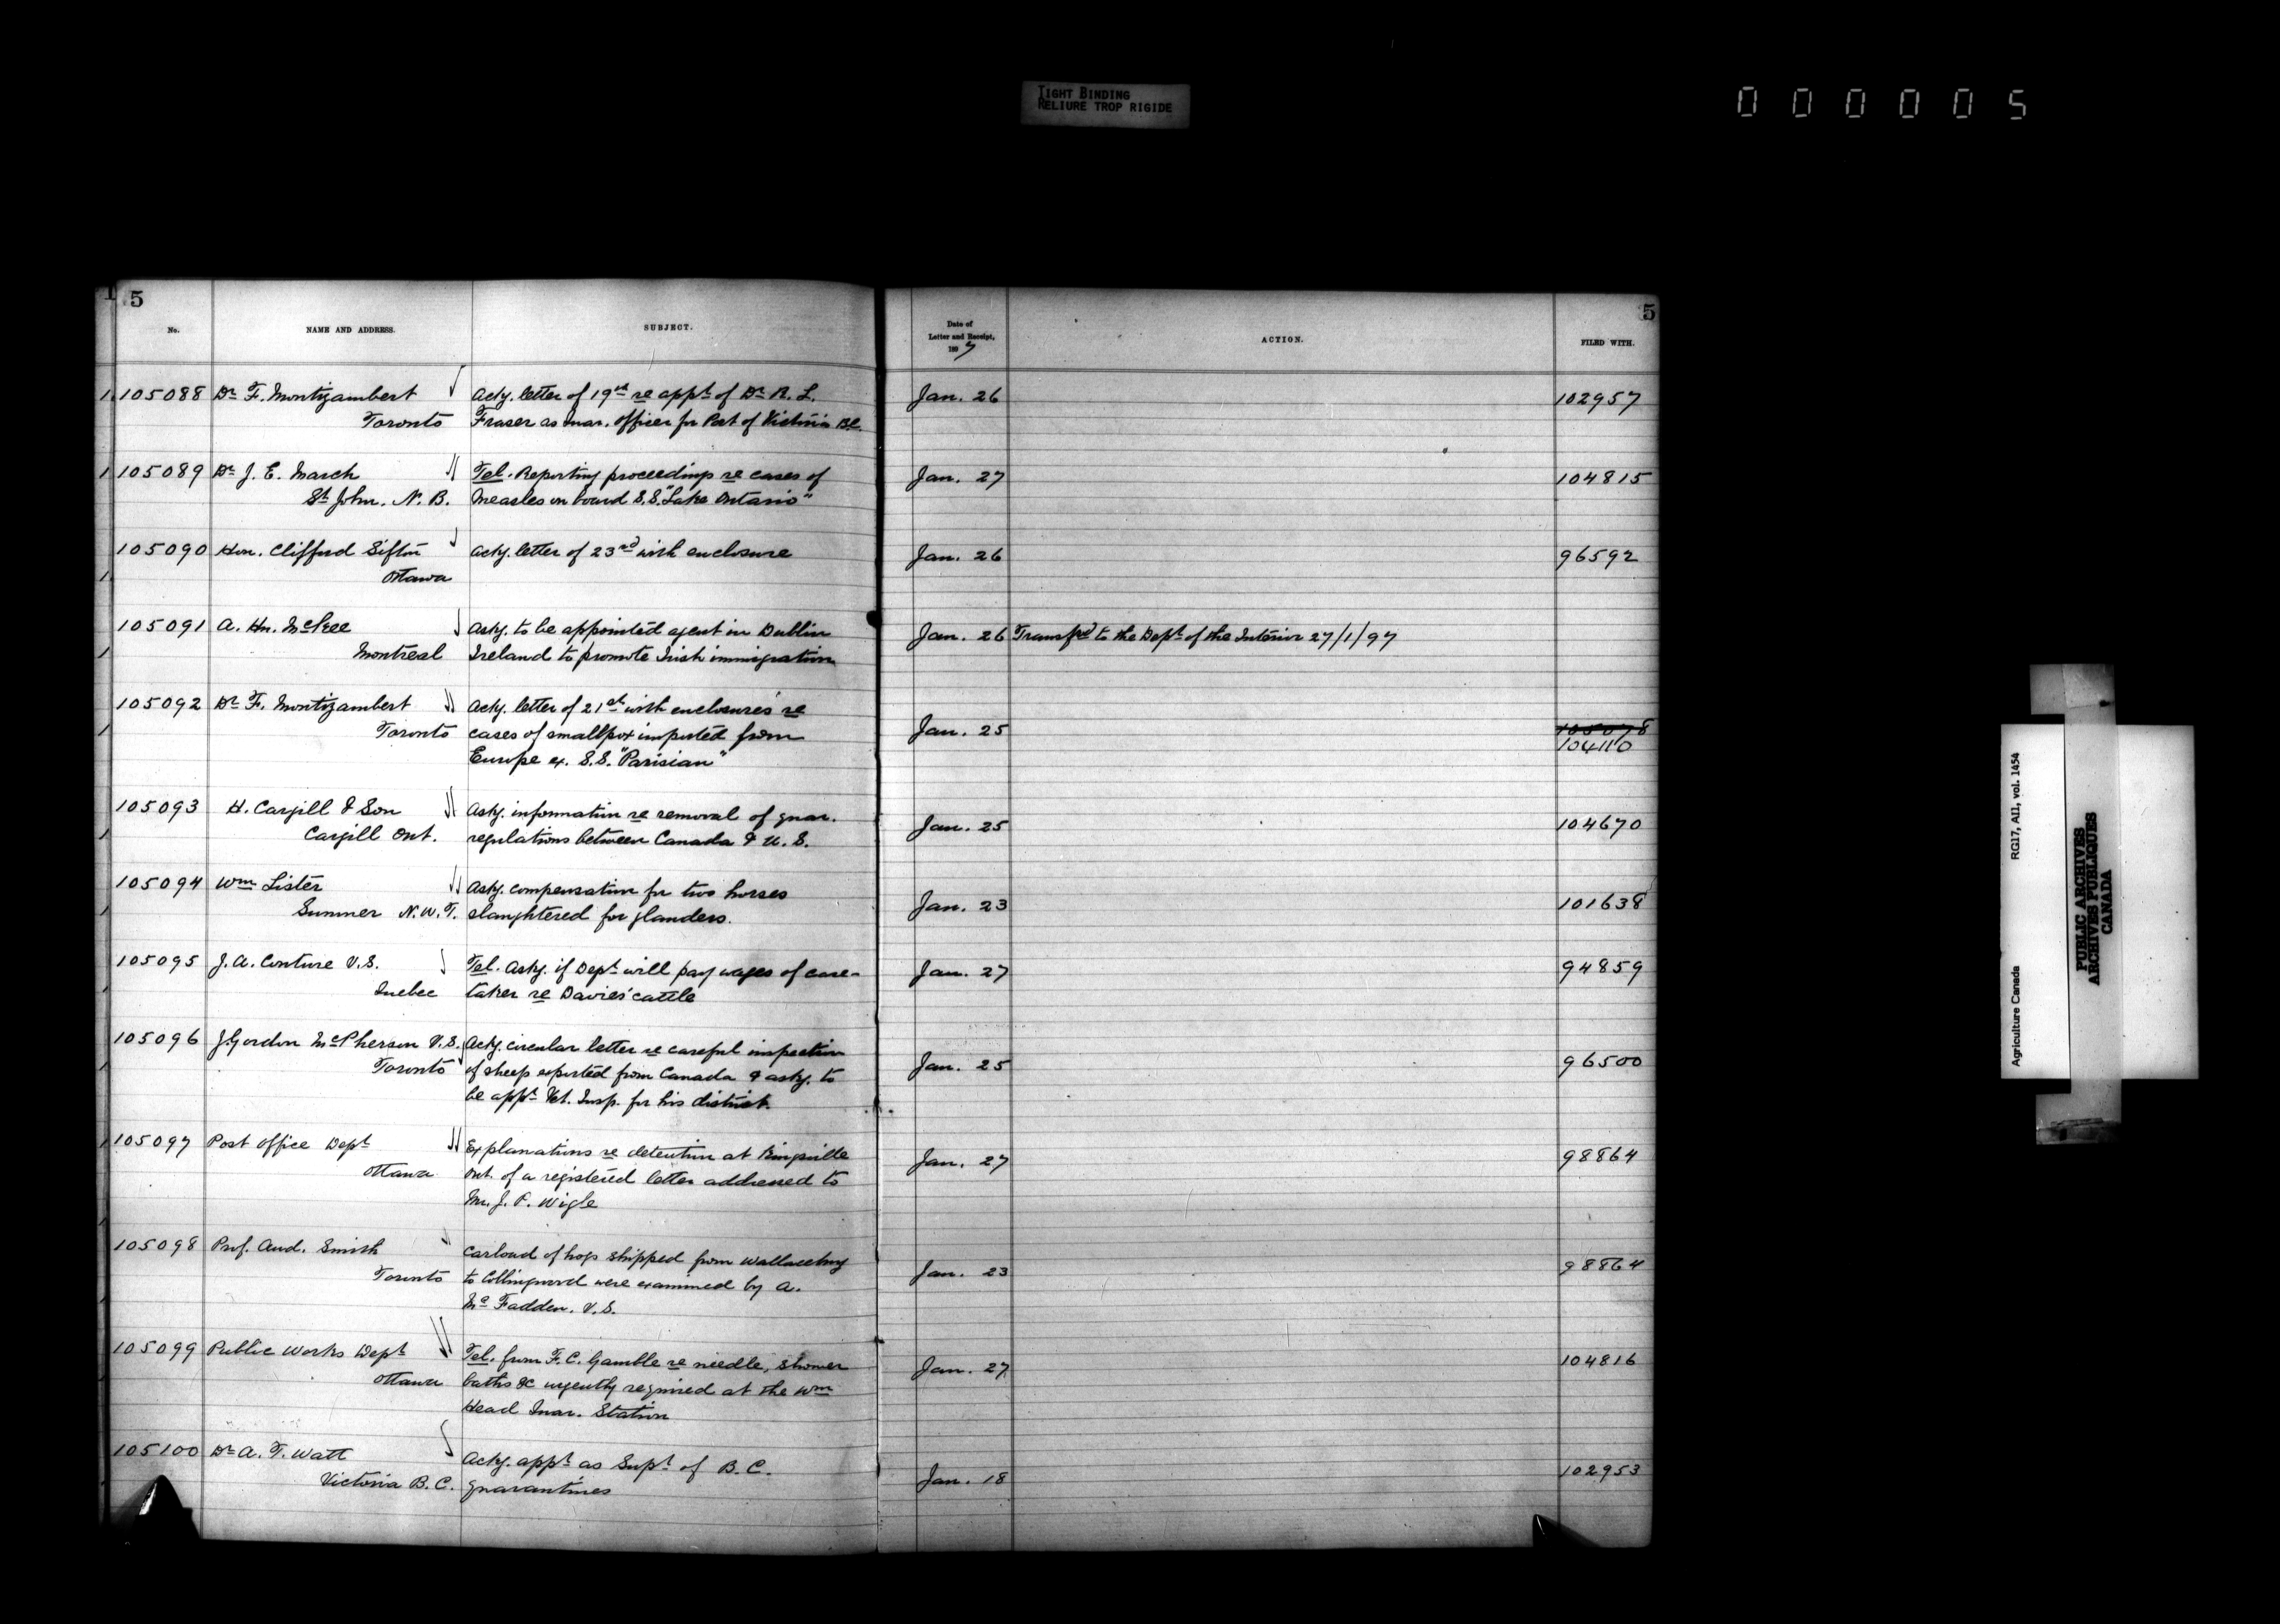 TIGHT BINDING
RELIURE TROP RIGIDE
000005
5
No.
NAME AND ADDRESS.
SUBJECT.
Date of
Letter and Receipt,
1897
ACTION.
FILED WITH.
5
105088 Dr F. Montizambert Ackg. letter of 19th re appt of Dr R. L. Jan. 26 102957
Toronto Fraser as Quar. Officer for Port of Victoria B.C.
105089 Dr J. E. March Tel. Reporting proceedings re cases of Jan. 27 104815
St John. N. B. Measles on board S.S. "Lake Ontario"
105090 Hon. Clifford Sifton Ackg. letter of 23rd with enclosure Jan. 26 96592
Ottawa
105091 A. Hn. McKee Askg. to be appointed agent in Dublin Jan. 26 Transfd to the Dept of the Interior 27/1/97
Montreal Ireland to promote Irish immigration
105092 Dr F. Montizambert Ackg. letter of 21st with enclosures re
Toronto cases of smallpox imported from Jan. 25 105078
104110
Europe ex. S.S. "Parisian"
105093 H. Cargill & Son Askg. information re removal of quar. Jan. 25 104670
Cargill Ont. regulations between Canada & U. S.
105094 Wm Lister Askg. compensation for two horses Jan. 23 101638
Sumner N.W.T. slaughtered for glanders.
105095 J. A. Couture V.S. Tel. Askg. if Dept will pay wages of care- Jan. 27 94859
Quebec taker re Davies' cattle
105096 J. Gordon McPherson V.S. Ackg. circular letter re careful inspection
Toronto of sheep exported from Canada & askg. to Jan. 25 96500
be appt Vet. Insp. for his district.
105097 Post Office Dept Explanations re detention at Kingsville Jan. 27 98864
Ottawa Ont. of a registered letter addressed to
Mr. J. P. Wigle
105098 Prof. And. Smith Carload of hogs shipped from Wallaceburg
Toronto to Collingwood were examined by A. Jan. 23 98864
McFadden. V.S.
105099 Public Works Dept Tel. from F. C. Gamble re needle, shower Jan. 27 104816
Ottawa baths &c urgently required at the Wm
Head Quar. Station
105100 Dr A. T. Watt Ackg. appt as Supt of B. C. Jan. 18 102953
Victoria B. C. quarantines
Agriculture Canada RG17, AII, vol. 1454
PUBLIC ARCHIVES
ARCHIVES PUBLIQUES
CANADA